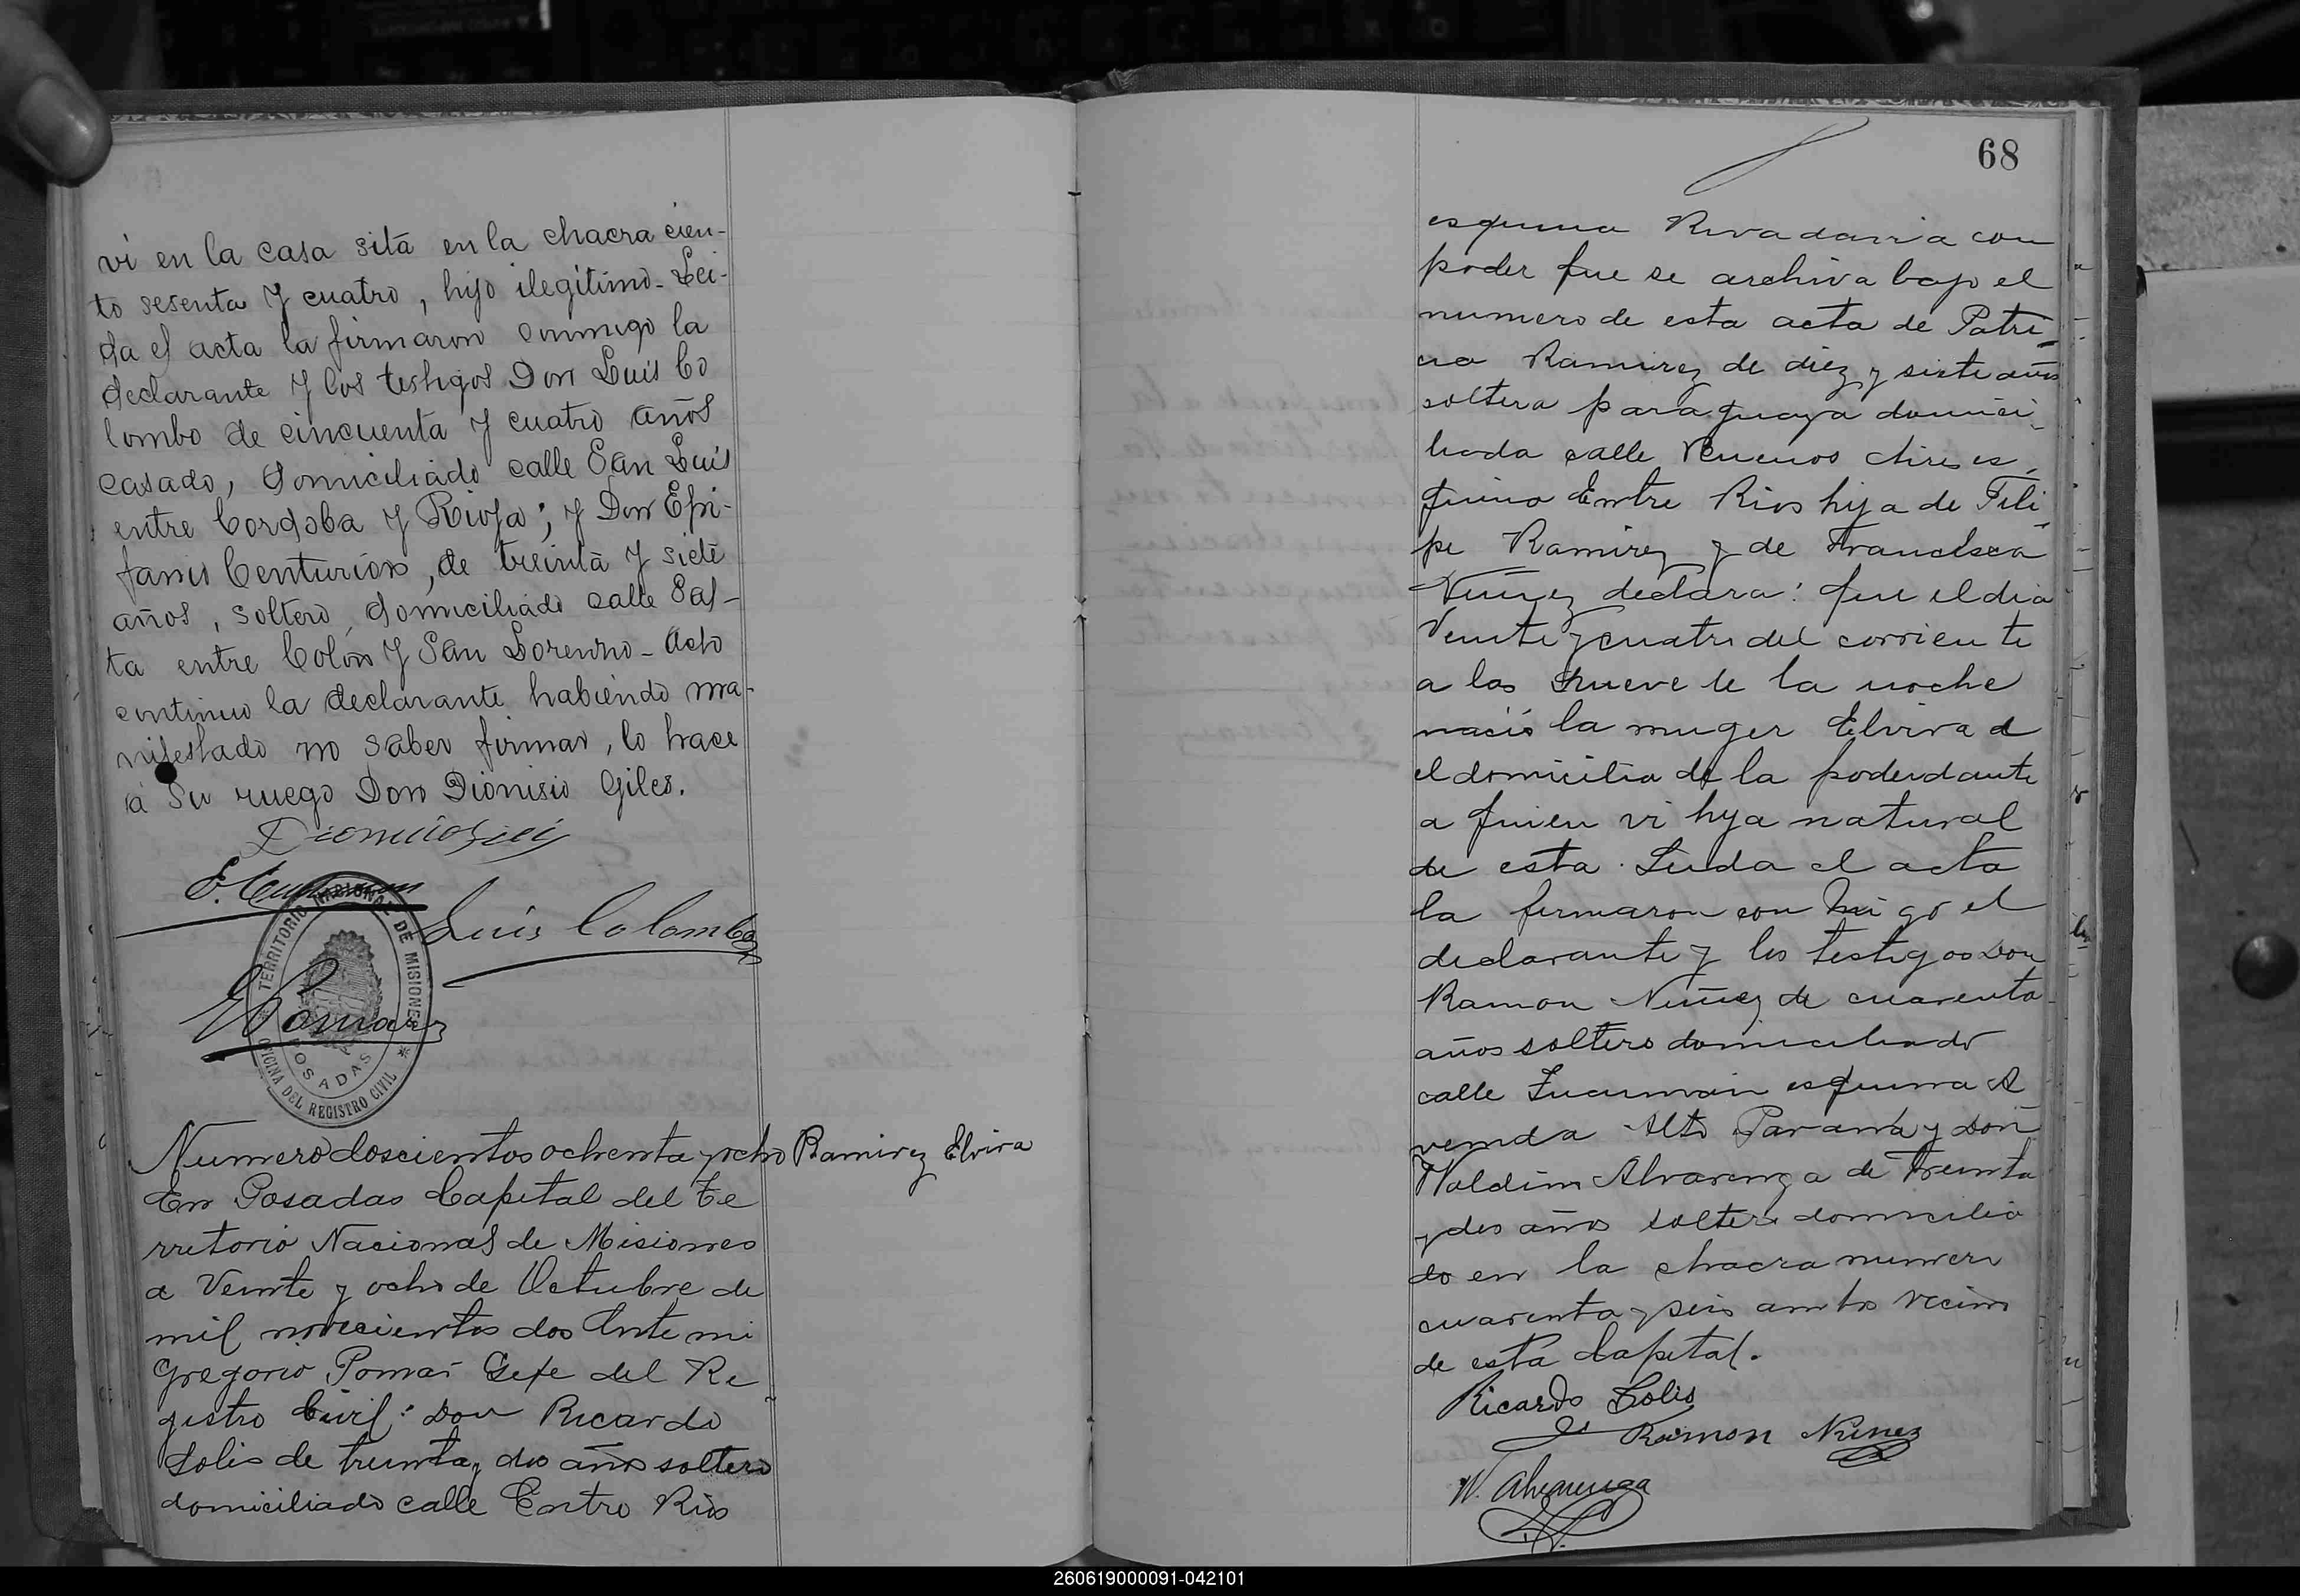 vi en la casa sita en la chacra cien-
to sesenta y cuatro, hijo ilegítimo. Lei-
da el acta la firmaron conmigo la
declarante y los testigos Don Luis Co
lombo de cincuenta y cuatro años
casado, domiciliado calle San Luis
entre Cordoba y Rioja; y Don Epi-
fanio Centurión, de treinta y siete
años, soltero, domiciliado calle Sal-
ta entre Colón y San Lorenzo - Acto
continuo la declarante habiendo ma-
nifestado no saber firmar, lo hace
á su ruego Don Dionisio Giles.
Luis Colombo
TERRITORIO NACIONAL DE MISIONES
POSADAS
OFICINA DEL REGISTRO CIVIL
G Pomar
Numero doscientos ochenta y ocho Ramirez Elvira
En Posadas Capital del Te
rritorio Nacional de Misiones
a Veinte y ocho de Octubre de
mil novecientos dos Ante mi
Gregorio Pomar Gefe del Re
gistro Civil: Don Ricardo
Solis de treinta y dos años soltero
domiciliado calle Entre Rios
68
esquina Rivadavia con
poder que se archiva bajo el
numero de esta acta de Patri
cia Ramirez de diez y siete años
soltera paraguaya domici
liada calle Buenos Aires es
quina Entre Rios hija de Feli
pe Ramirez y de Francisca
Nuñez declara: que el dia
Veinte y cuatro del corriente
a las nueve de la noche
nació la muger Elvira
el domicilio de la poderdante
a quien vi hija natural
de esta. Leida el acta
la firmaron con migo el
declarante y los testigos Don
Ramon Nuñez de cuarenta
años soltero domiciliado
calle Tucuman esquina A
venida Alto Paraná y Don
Waldim Alvarenga de treinta
y dos años soltero domicilia
do en la chacra numero
cuarenta y seis ambos vecinos
de esta Capital.
Ricardo Solis
Ramon Nunez
W. Alvarenga
260619000091-042101